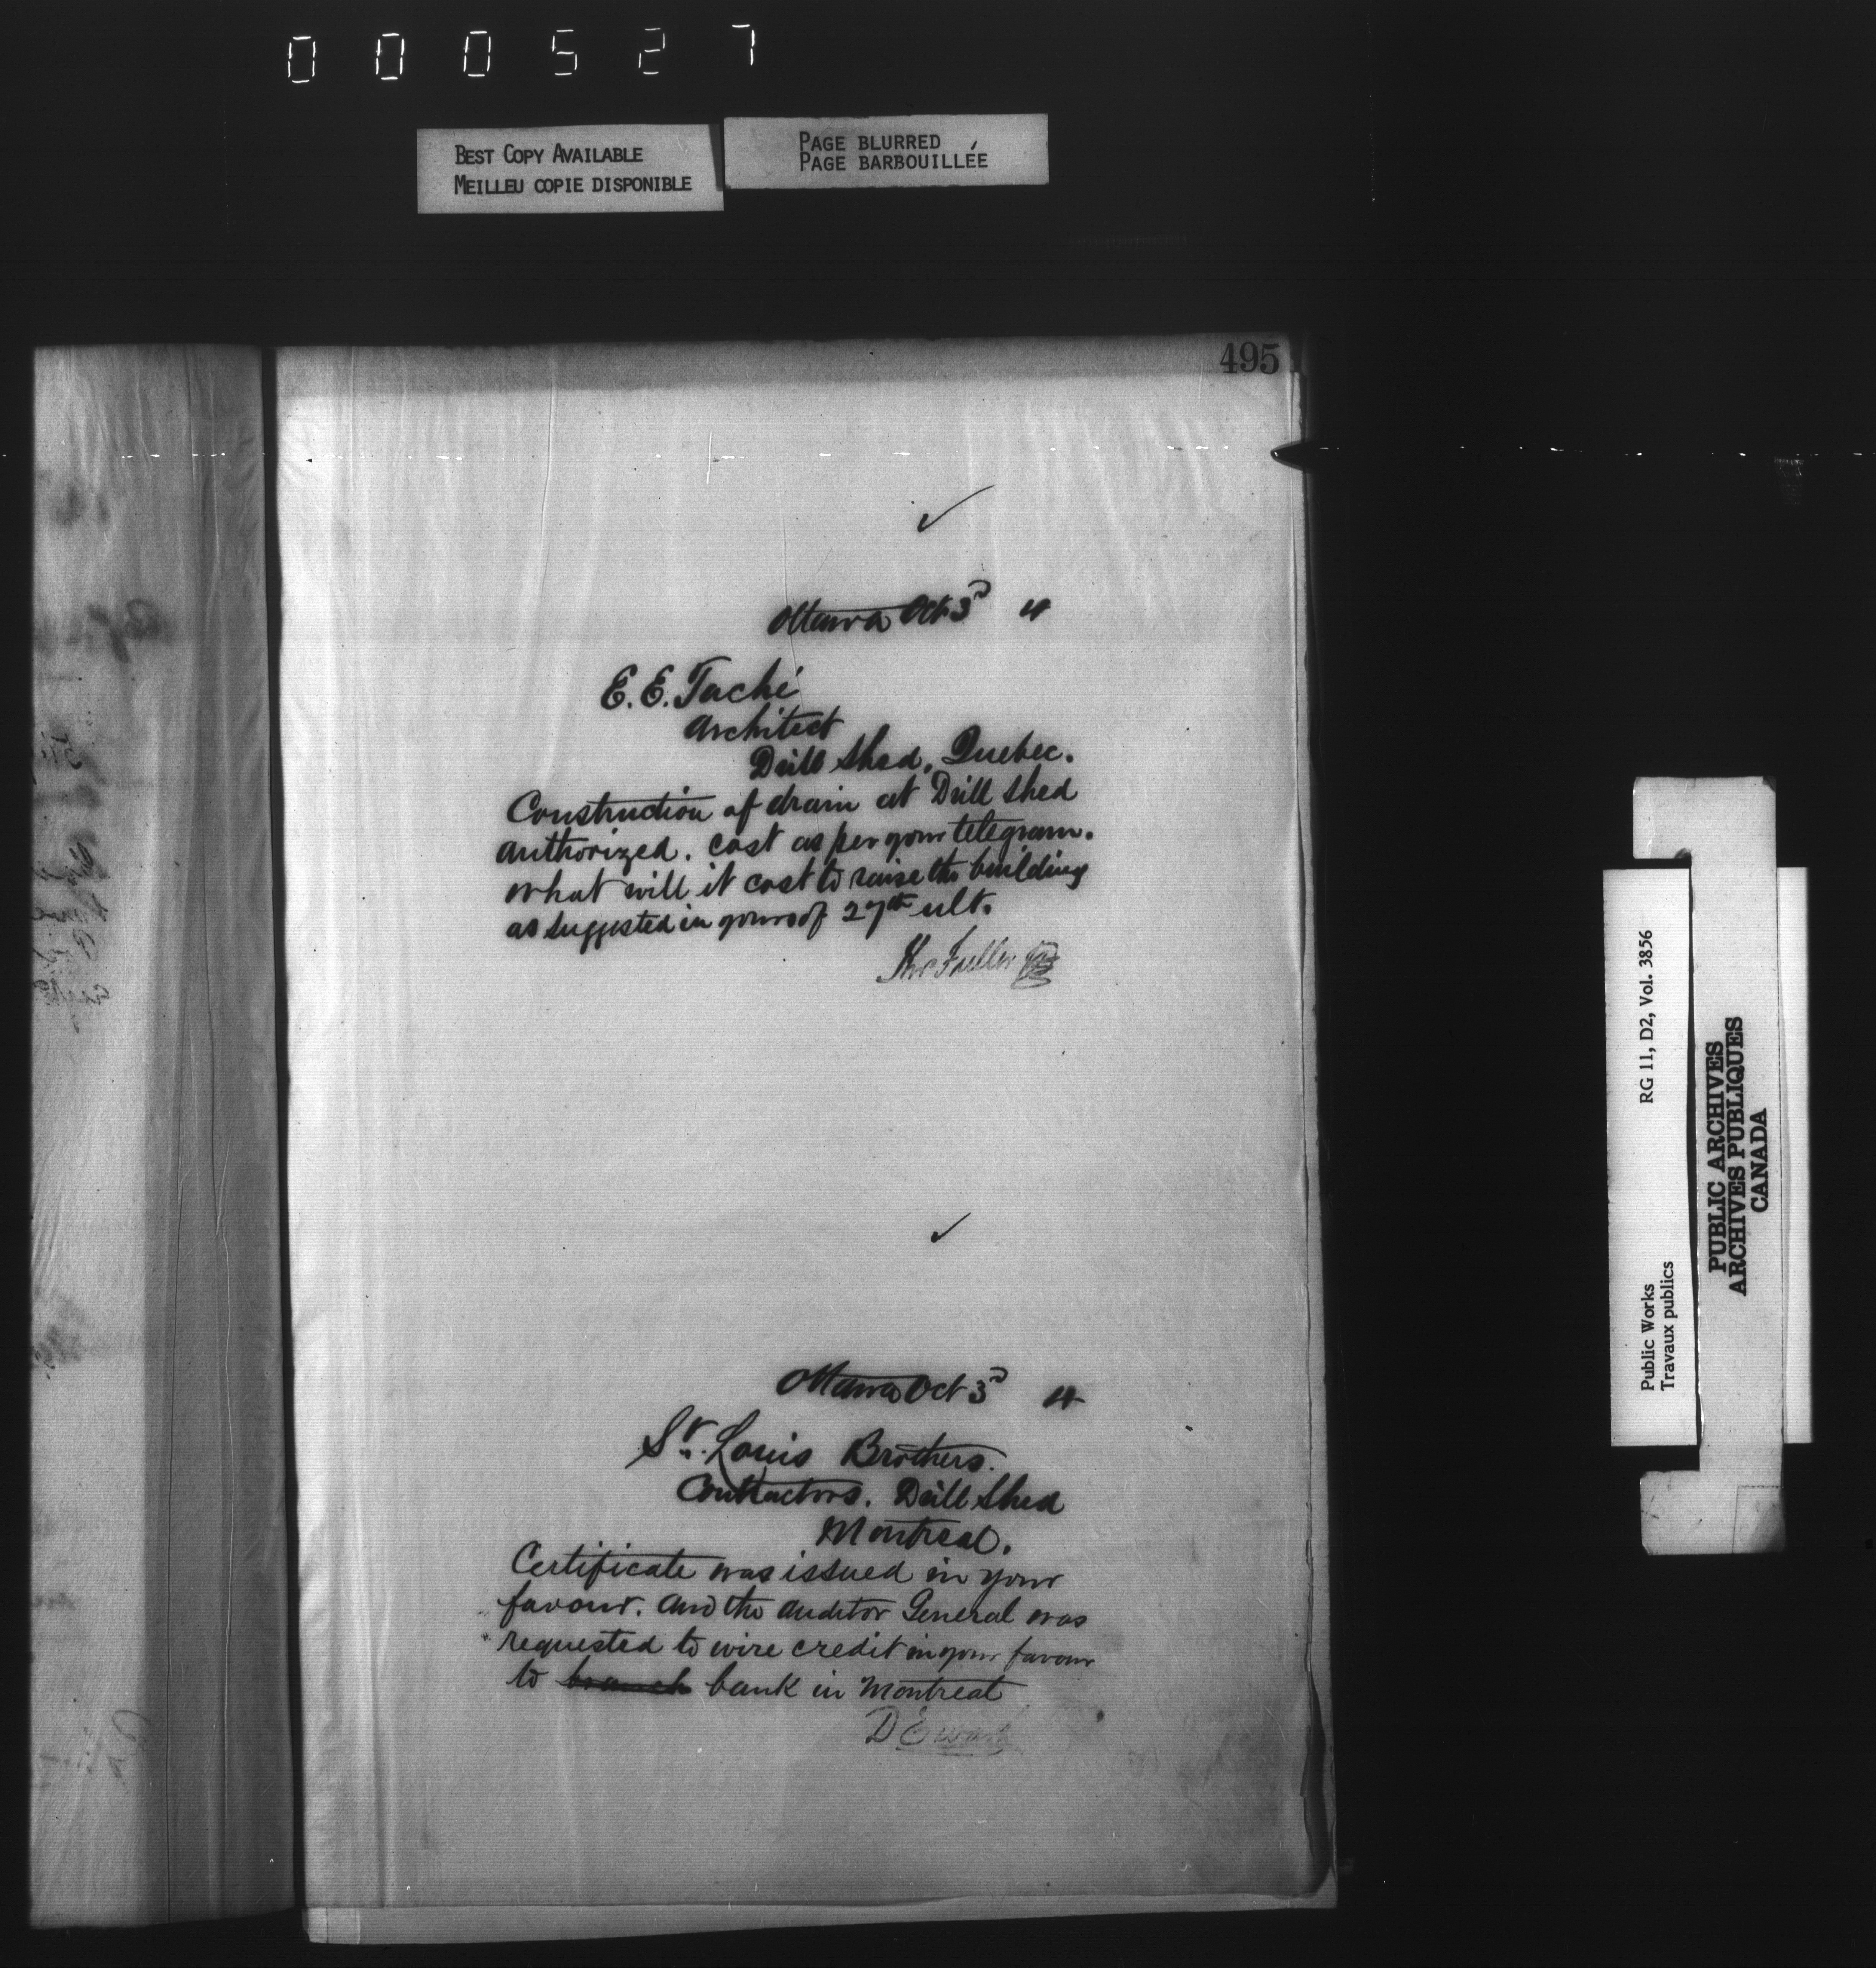 000527
BEST COPY AVAILABLE
MEILLEU COPIE DISPONIBLE
PAGE BLURRED
PAGE BARBOUILLÉE
495
Ottawa Oct 3d 4
E. E. Taché
Architect
Drill Shed, Quebec.
Construction of drain at Drill shed
authorized. Cost as per your telegram.
What will it cost to raise the building
as suggested in yours of 27th ult.
Thos Fuller
Ottawa Oct 3d 4
St. Louis Brothers.
Contractors. Drill Shed
Montreal.
Certificate was issued in your
favour. and the Auditor General was
requested to wire credit in your favour
to branch bank in Montreal
D Ewart
Public Works
Travaux publics
RG 11, D2, Vol. 3856
PUBLIC ARCHIVES
ARCHIVES PUBLIQUES
CANADA